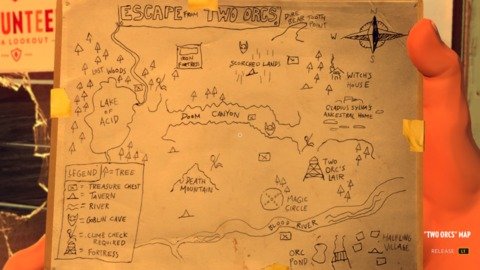 UNTEE
A LOOKOUT
ESCAPE FROM TWO ORCS
DIRE
BEAR TOOTH
POINT
N
W
E
S
LOST WOODS
IRON
FORTRESS
SCORCHED LANDS
WITCH'S
HOUSE
LAKE
OF
ACID
DOOM CANYON
GLADIUS SYLVA'S
ANCESTRAL HOME
LEGEND
=TREE
= TREASURE CHEST
= TAVERN
= RIVER
= GOBLIN CAVE
= CLIMB CHECK
REQUIRED
= FORTRESS
DEATH
MOUNTAIN
TWO
ORC'S
LAIR
MAGIC
CIRCLE
BLOOD RIVER
ORC
POND
HALFLING
VILLAGE
"TWO ORCS" MAP
RELEASE